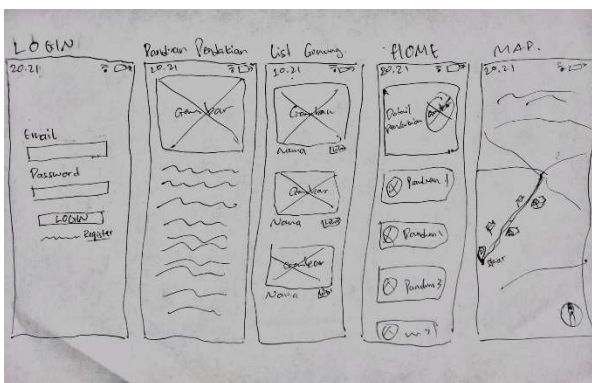 LOGIN
20.21
Email
Password
LOGIN
Register
Panduan Pendakian
20.21
Gambar
List Gunung
20.21
Gambar
Nama
Gambar
Nama
Gambar
Nama
HOME
20.21
Detail
pendakian
Gambar
Panduan 1
Panduan 2
Panduan 3
MAP.
20.21
Start